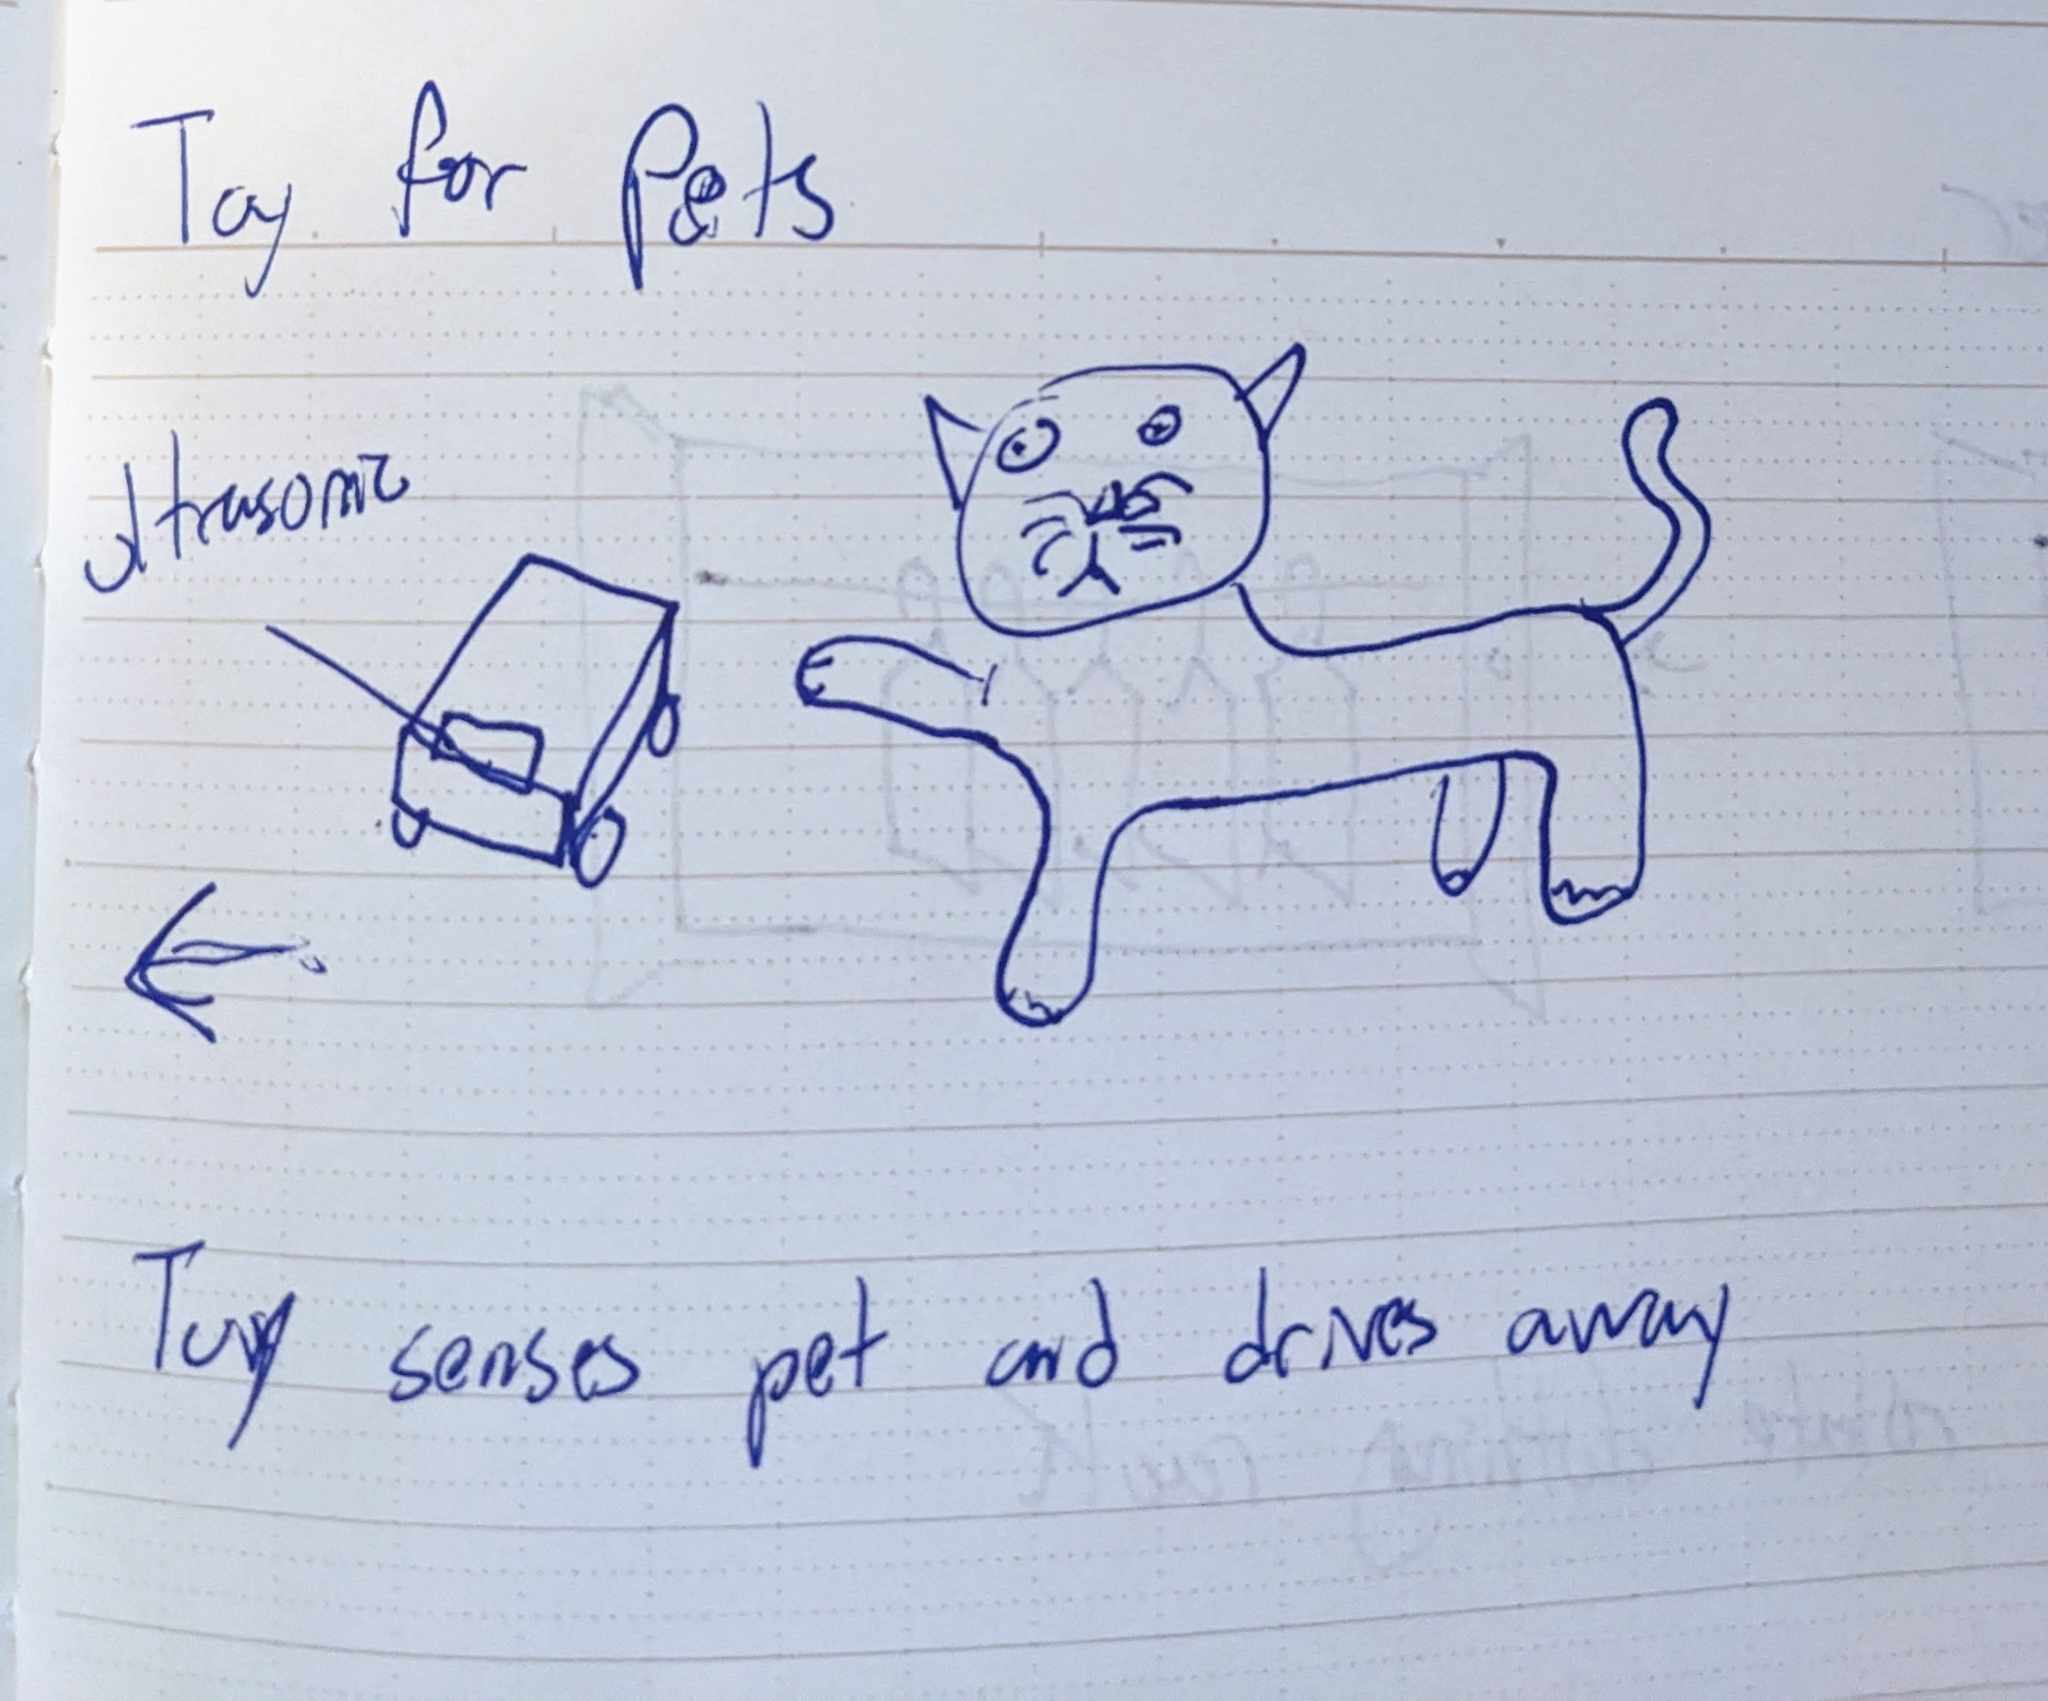 Toy for Pets
Ultrasonic
Toy senses pet and drives away